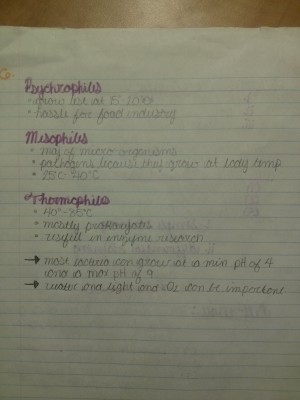 Psychrophiles
• grow best at 15-20°C
• hassle for food industry
Mesophiles
• maj of micro organisms
• pathogens because they grow at body temp
• 25°C-40°C
Thermophiles
• 40°-85°C
• mostly prokaryotes
• useful in enzyme research
→ most bacteria can grow at a min pH of 4
and a max pH of 9
→ water and light and O₂ can be important